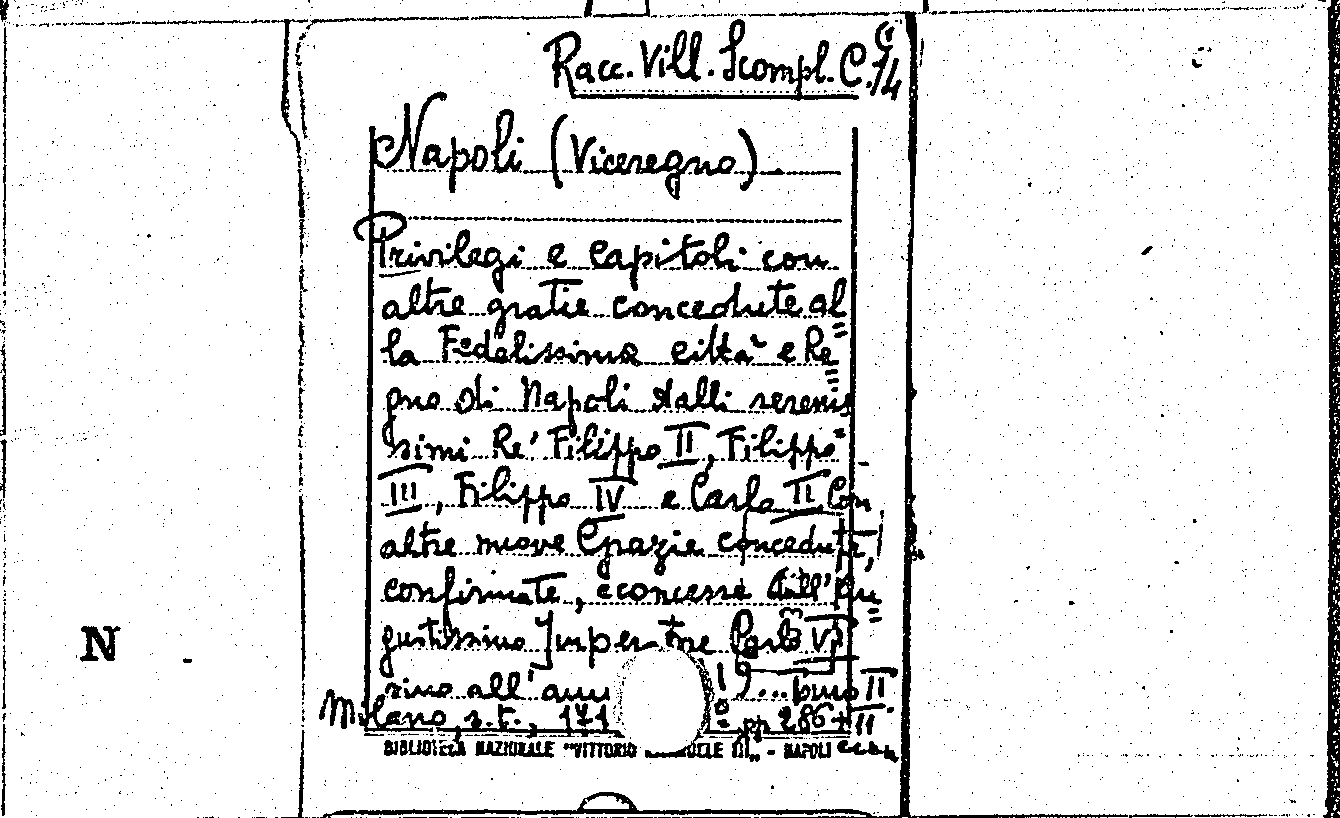 Racc. Vill. Scompl. C. 9/4
Napoli (Viceregno)
Privilegi e Capitoli con
altre gratie concedute al=
la Fedelissima città e Re=
gno di Napoli dalli serenis=
simi Re' Filippo II, Filippo
III, Filippo IV e Carlo II. Con
altre nuove Grazie concedute,
confirmate, e concesse dall' Au=
gustissimo Imperatore Carlo VI
sino all' anno
Milano, s.t., pp 286 + II
BIBLIOTECA NAZIONALE "VITTORIO EMANUELE III„ - NAPOLI
N